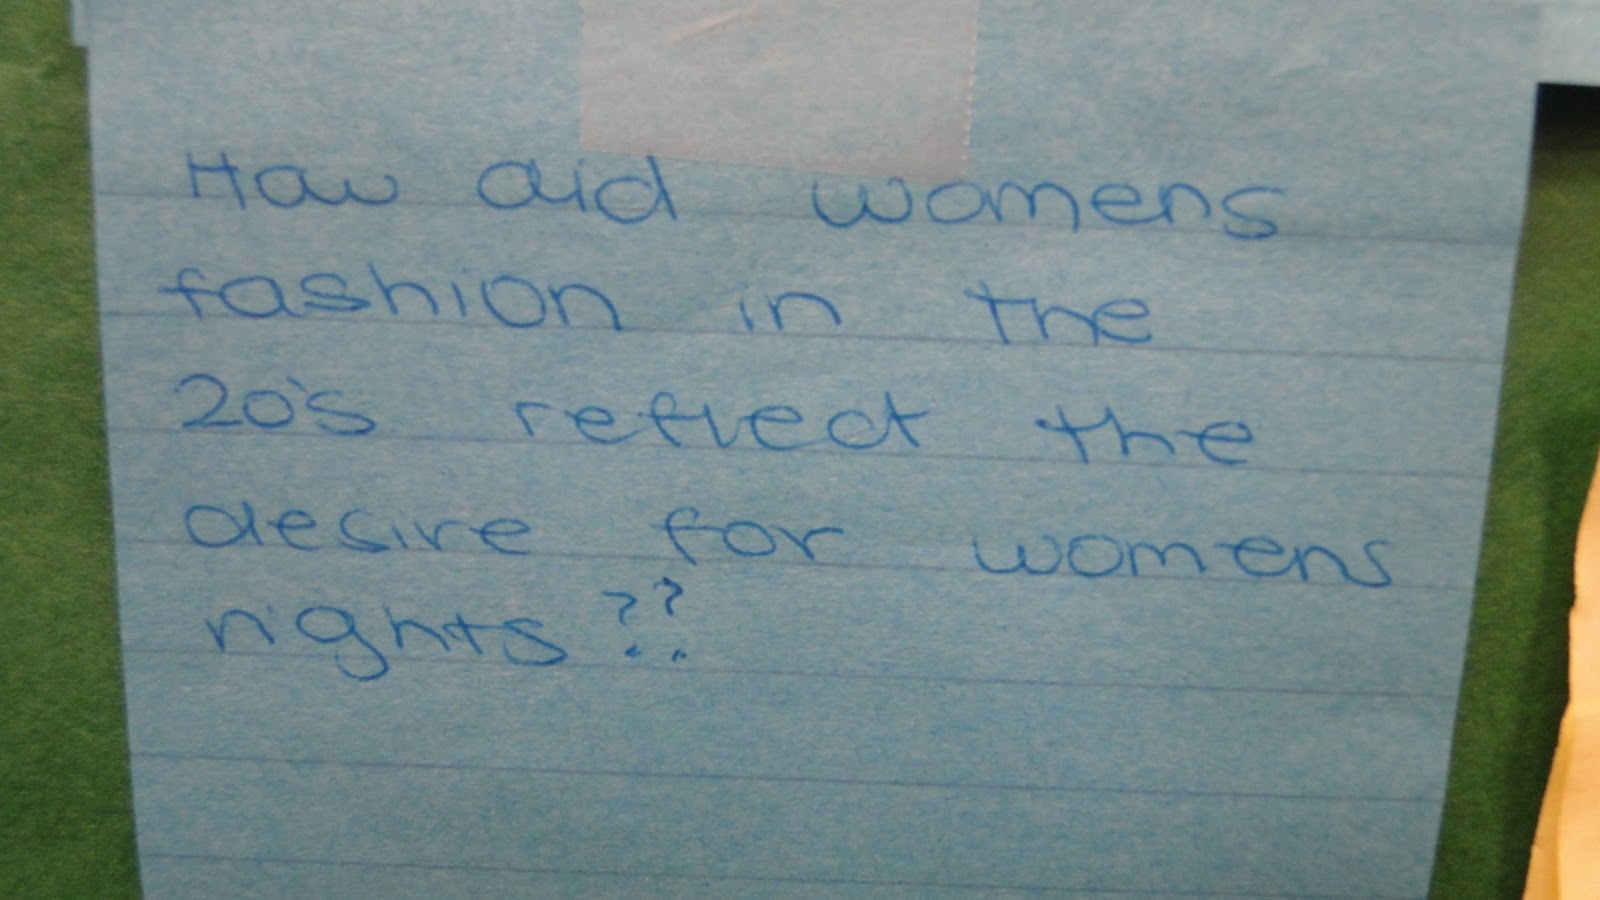 How did womens
fashion in the
20's reflect the
desire for womens
rights??